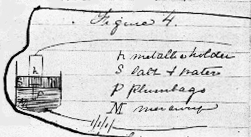 Figure 4.
h
h metallic holder
S Salt & water
P Plumbago
M mercury